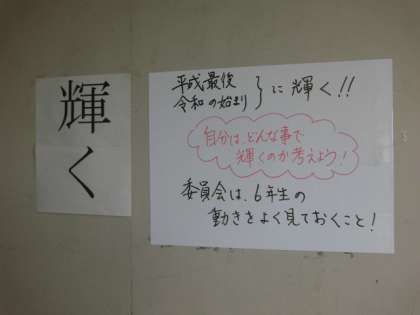 輝く
平成最後
令和の始まり
}に輝く!!
自分は、どんな事で
輝くのか考えよう!
委員会は、6年生の
動きをよく見ておくこと!